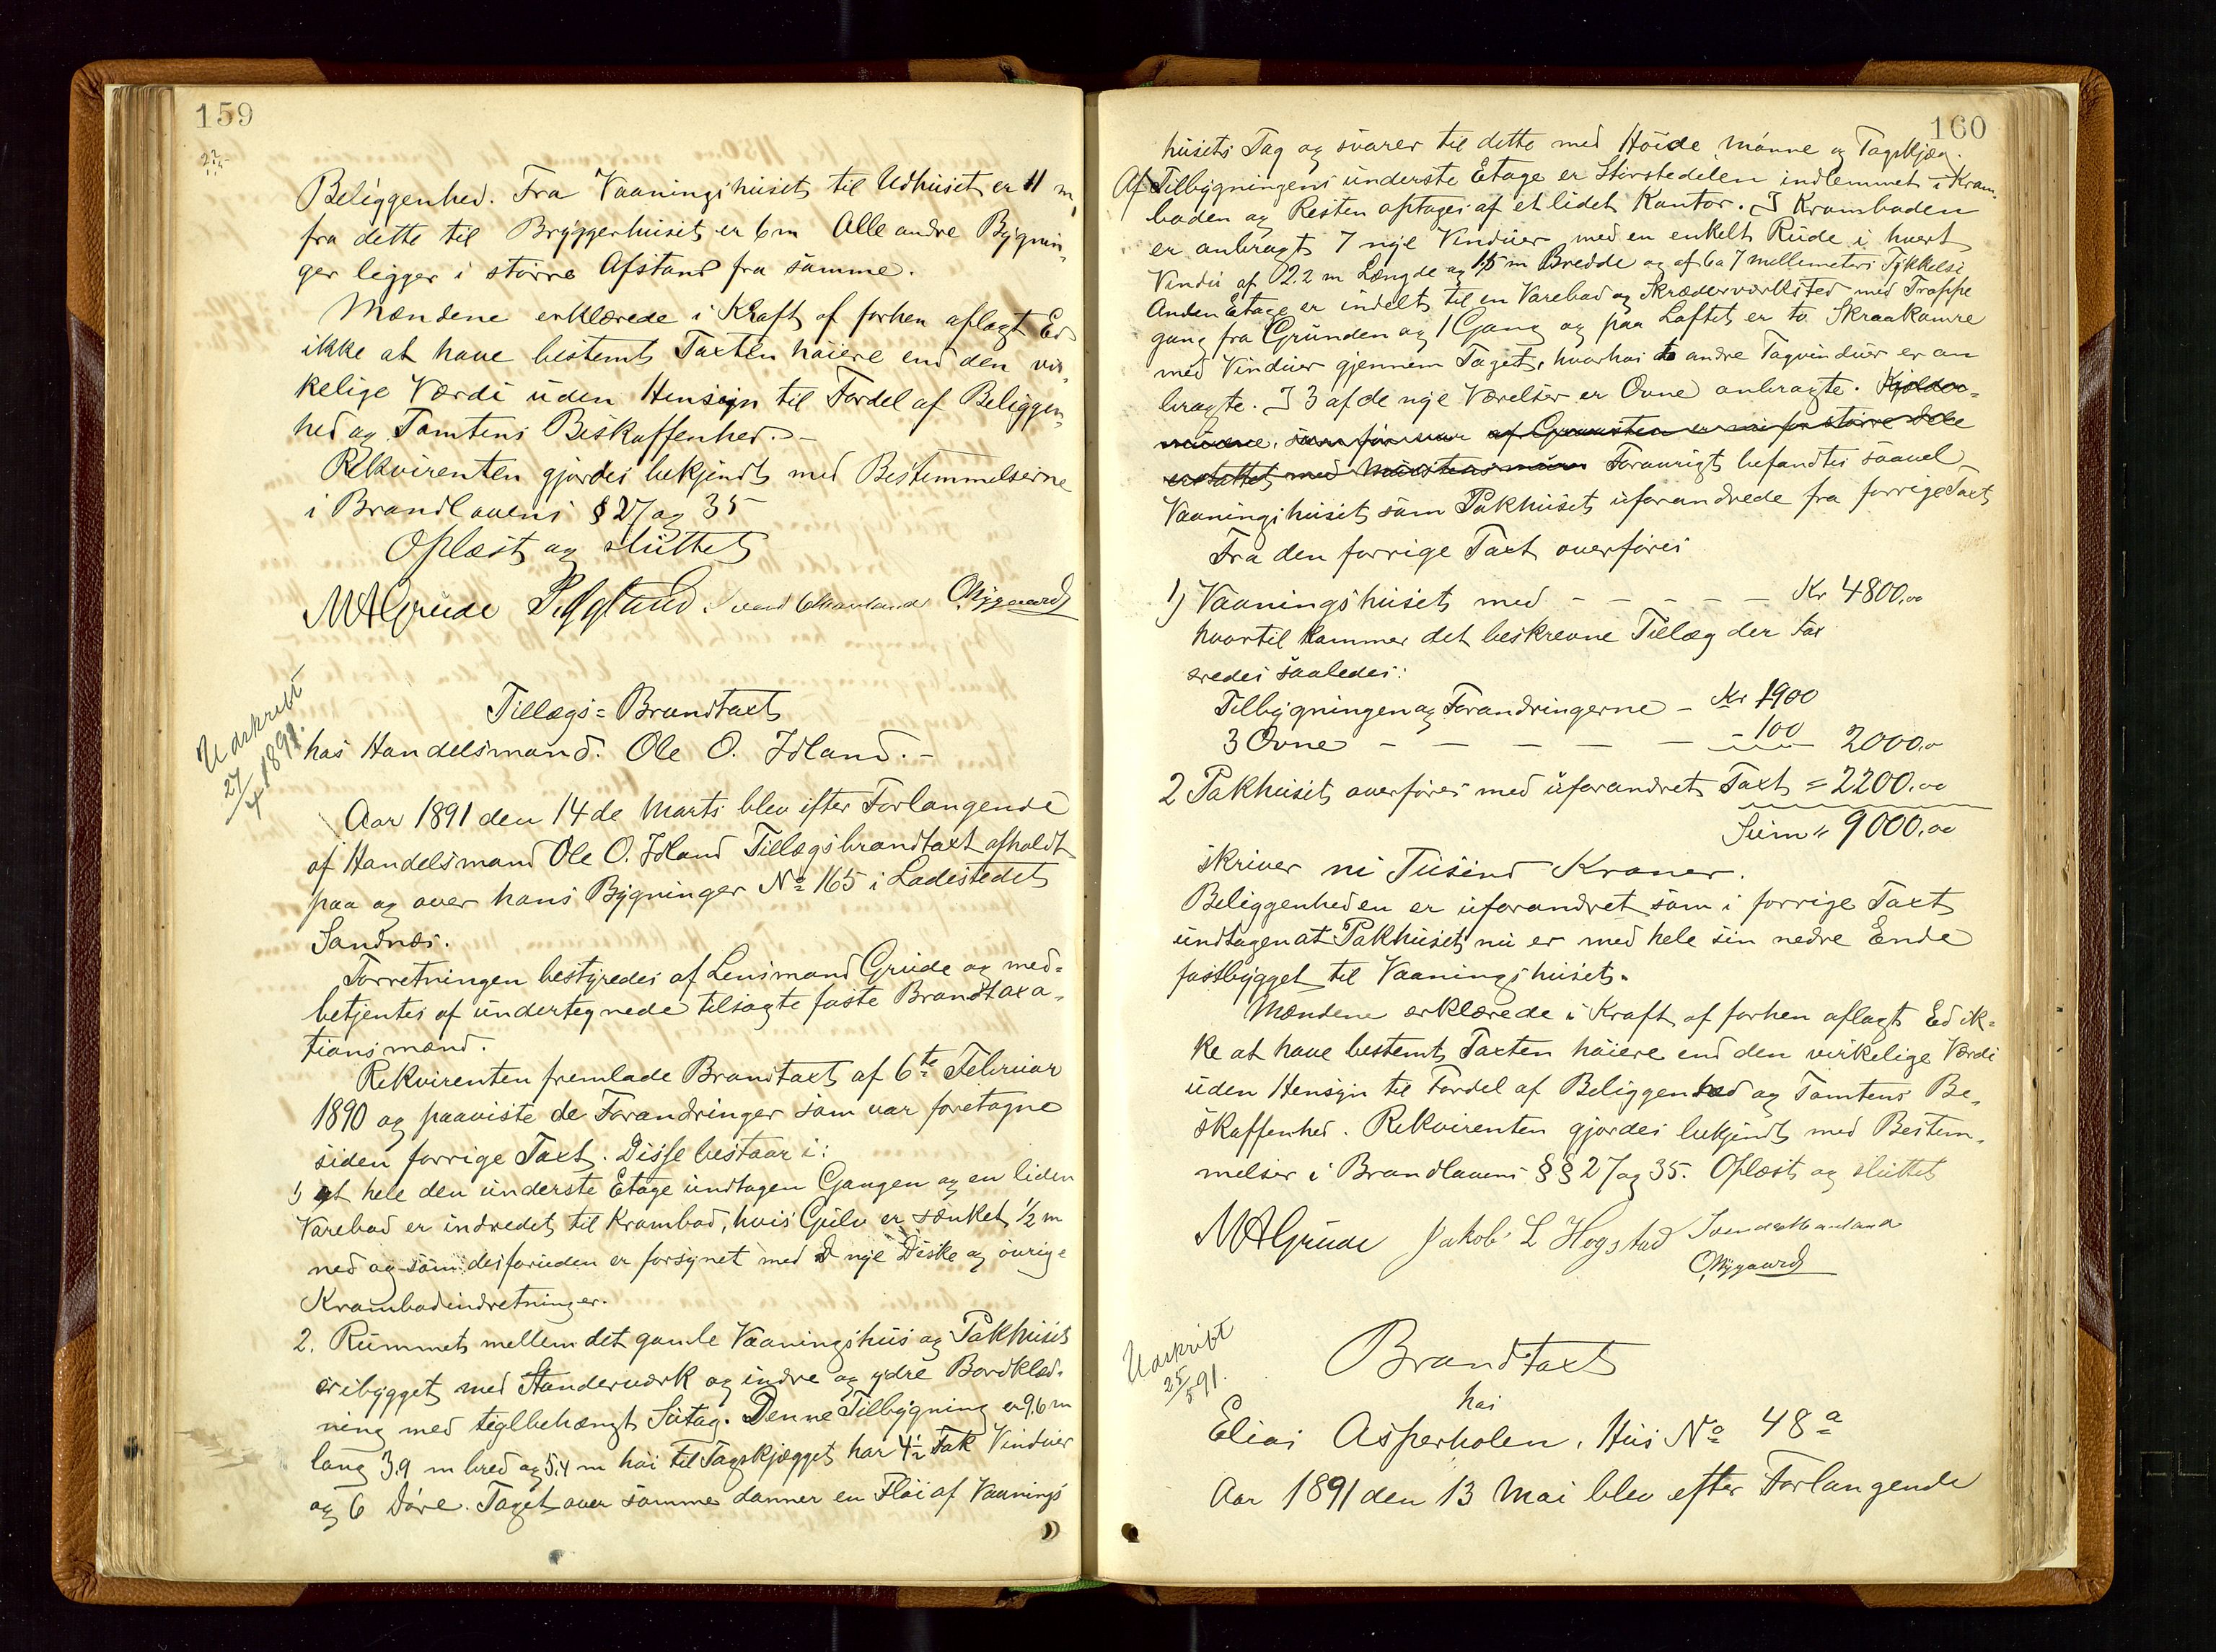 159
Beliggenhed. Fra Vaaningshuset til Udhuset er 11 m,
fra dette til Bryggerhuset er 6 m Alle andre Bygnin-
ger ligger i større Afstand fra samme.
Mændene erklærede i Kraft af forhen aflagt Ed
ikke at have bestemt Taxten høiere end den vir-
kelige Værdi uden Hensyn til Fordel af Beliggen-
hed og Tomtens Beskaffenhed. -
Rekvirenten gjordes bekjendt med Bestemmelserne
i Brandlovens § 27 og 35
Oplæst og sluttet
MAGrude
Udskrift
27/4 1891.
Tillægs= Brandtaxt
hos Handelsmand Ole O. Idland. -
Aar 1891 den 14de Marts blev efter Forlangende
af Handelsmand Ole O. Idland Tillægsbrandtaxt afholdt
paa og over hans Bygninger No 165 i Ladestedet
Sandnæs.
Forretningen bestyredes af Lensmand Grude og med-
betjentes af undertegnede tilsagte faste Brandtaxa-
tionsmænd.
Rekvirenten fremlagde Brandtaxt af 6te Februar
1890 og paaviste de Forandringer som var foretagne
siden forrige Taxt. Disse bestaar i:
1) at hele den underste Etage undtagen Gangen og en liden
Varebod er indredet til Krambod, hvis Gulv er sænket 1/2 m
ned og som desforuden er forsynet med nye Diske og øvrige
Krambodindretninger.
2. Rummet mellem det gamle Vaaningshus og Pakhuset
er ibygget med Standerværk og indre og ydre Bordklæd-
ning med teglbehængt Sutag. Denne Tilbygning er 9.6 m
lang 3.9 m bred og 5.4 m høi til Tagskjægget har 4 1/2 Fak Vinduer
og 6 Døre. Taget over samme danner en Fløi af Vaanings
160
husets Tag og svarer til dette med Høide, Mønne og Tagskjæg.
Af Tilbygningens underste Etage er Størstedelen indlemmet i Kram-
boden og Resten optages af et lidet Kontor. I Kramboden
er anbragt 7 nye Vinduer med en enkelt Rude i hvert
Vindu af 2.2 m Længde og 1,5 m Bredde og af 6 a 7 millemeters Tykkelse
Anden Etage er indelt til en Varebod og Skræderværksted med Trappe
gang fra Grunden og 1 Gang og paa Loftet er to Skraakamre
med Vinduer gjennem Taget, hvorhos to andre Tagvinduer er an
bragte. I 3 af de nye Værelser er Ovne anbragte. Kjælder-
murene, som før var af Graasten er nu for større Dele
erstattet med Murstensmure Forøvrigt befandtes saavel
Vaaningshuset som Pakhuset uforandrede fra forrige Taxt
Fra den forrige Taxt overføres
1) Vaaningshuset med - - - - - Kr 4800,00
hvortil kommer det beskrevne Tillæg der tax
eredes saaledes:
Tilbygningen og Forandringerne - Kr 1900
3 Ovne - - - - - - 100 2000,00
2 Pakhuset overføres med uforandret Taxt = 2200,00
Sum " 9000,00
skriver ni Tusind Kroner.
Beliggenheden er uforandret som i forrige Taxt
undtagen at Pakhuset nu er med hele sin nedre Ende
fastbygget til Vaaningshuset.
Mændene erklærede i Kraft af forhen aflagt Ed ik-
ke at have bestemt Taxten høiere end den virkelige Værdi
uden Hensyn til Fordel af Beliggenhed og Tomtens Be-
skaffenhed. Rekvirenten gjordes bekjendt med Bestem-
melser i Brandlovens §§ 27 og 35. Oplæst og sluttet
MAGrude Jakob L Hogstad
Udskrift
25/5 91.
Brandtaxt
hos
Elias Asperholen, Hus No 48a
Aar 1891 den 13 Mai blev efter Forlangende